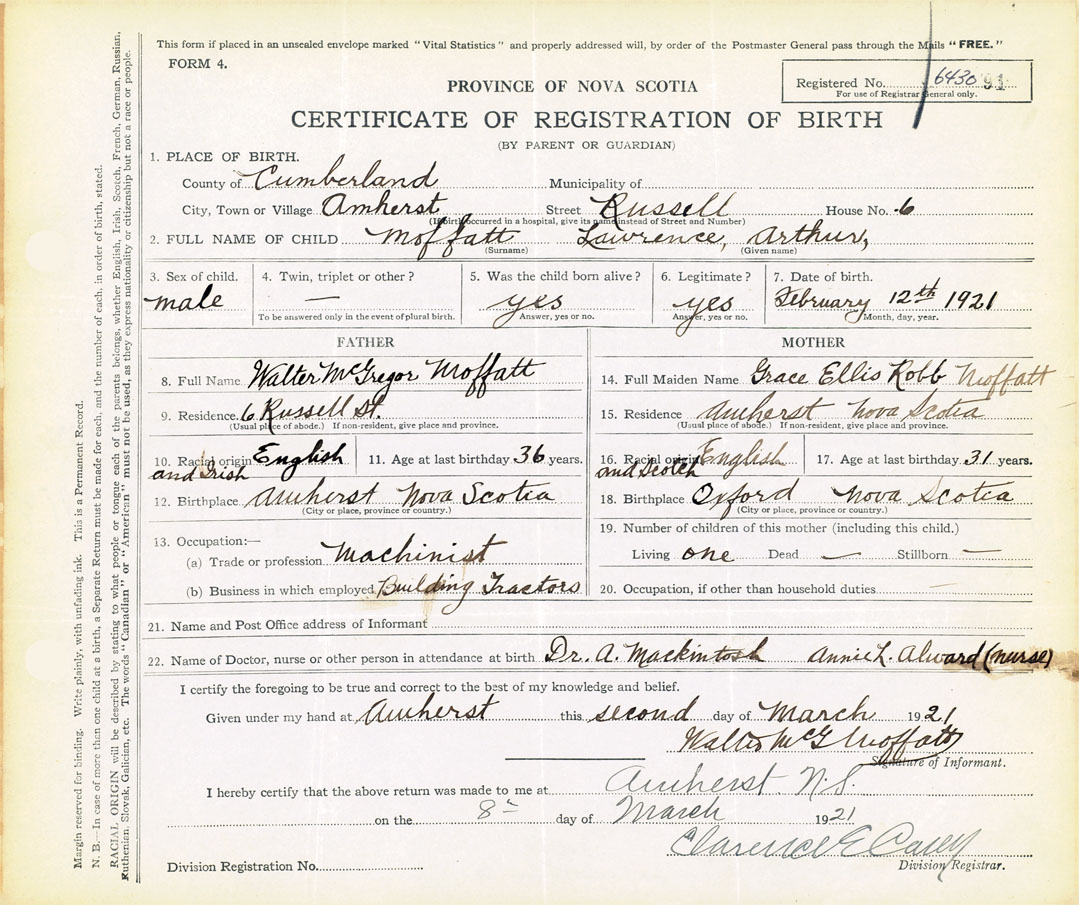 This form if placed in an unsealed envelope marked "Vital Statistics" and properly addressed will, by order of the Postmaster General pass through the Mails "FREE."
FORM 4.
Registered No. 6430 91
For use of Registrar General only.
PROVINCE OF NOVA SCOTIA
CERTIFICATE OF REGISTRATION OF BIRTH
(BY PARENT OR GUARDIAN)
1. PLACE OF BIRTH.
County of Cumberland Municipality of
City, Town or Village Amherst Street Russell House No. 6
(If birth occurred in a hospital, give its name instead of Street and Number)
2. FULL NAME OF CHILD Moffatt Lawrence, Arthur,
(Surname) (Given name)
3. Sex of child. 4. Twin, triplet or other? 5. Was the child born alive? 6. Legitimate? 7. Date of birth.
male — yes yes February 12th 1921
To be answered only in the event of plural birth. Answer, yes or no. Answer, yes or no. Month, day, year.
FATHER
8. Full Name Walter McGregor Moffatt
9. Residence 6 Russell St.
(Usual place of abode.) If non-resident, give place and province.
10. Racial origin English 11. Age at last birthday 36 years.
and Irish
12. Birthplace Amherst Nova Scotia
(City or place, province or country.)
13. Occupation:—
(a) Trade or profession Machinist
(b) Business in which employed Building Tractors
MOTHER
14. Full Maiden Name Grace Ellis Robb Moffatt
15. Residence Amherst Nova Scotia
(Usual place of abode.) If non-resident, give place and province.
16. Racial origin English 17. Age at last birthday 31 years.
and Scotch
18. Birthplace Oxford Nova Scotia
(City or place, province or country.)
19. Number of children of this mother (including this child.)
Living one Dead — Stillborn —
20. Occupation, if other than household duties
21. Name and Post Office address of Informant
22. Name of Doctor, nurse or other person in attendance at birth Dr. A. Mackintosh Annie L. Alward (nurse)
I certify the foregoing to be true and correct to the best of my knowledge and belief.
Given under my hand at Amherst this second day of March 1921
Walter McG Moffatt
Signature of Informant.
I hereby certify that the above return was made to me at Amherst N.S.
on the 8th day of March 1921
Clarence E Casey
Division Registrar.
Division Registration No.
Margin reserved for binding. Write plainly, with unfading ink. This is a Permanent Record.
N. B.—In case of more than one child at a birth, a Separate Return must be made for each, and the number of each, in order of birth, stated.
RACIAL ORIGIN will be described by stating to what people or tongue each of the parents belongs, whether English, Irish, Scotch, French, German, Russian,
Ruthenian, Slovak, Galician, etc. The words "Canadian" or "American" must not be used, as they express nationality or citizenship but not a race or people.